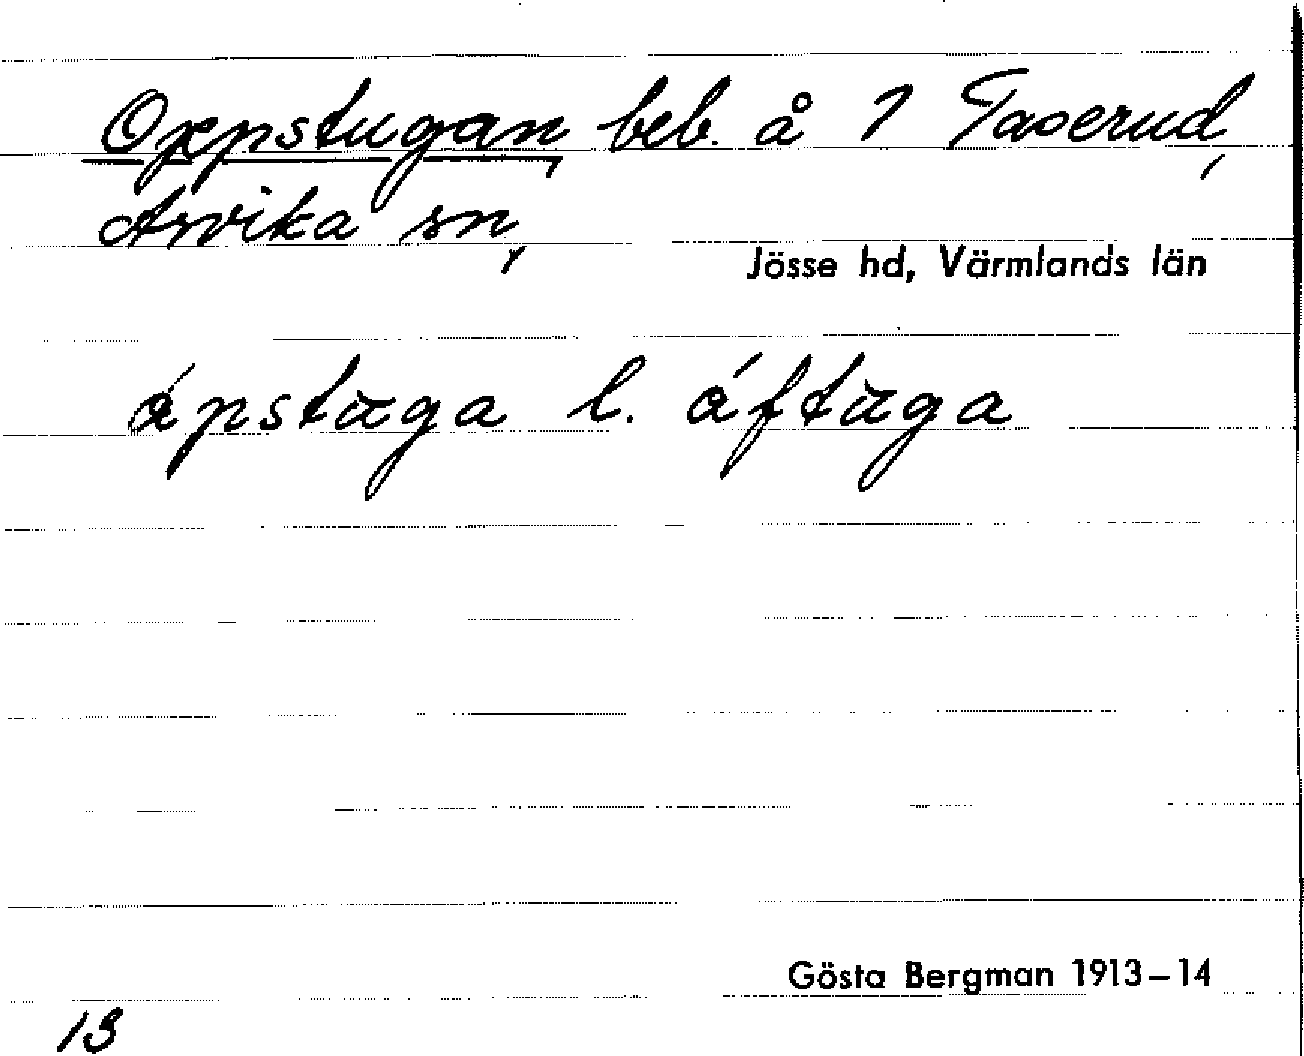 Oppstugan, beb. å 1 Taserud,
Arvika sn,
Jösse hd, Värmlands län
ápstuga l. áftuga
Gösta Bergman 1913–14
13